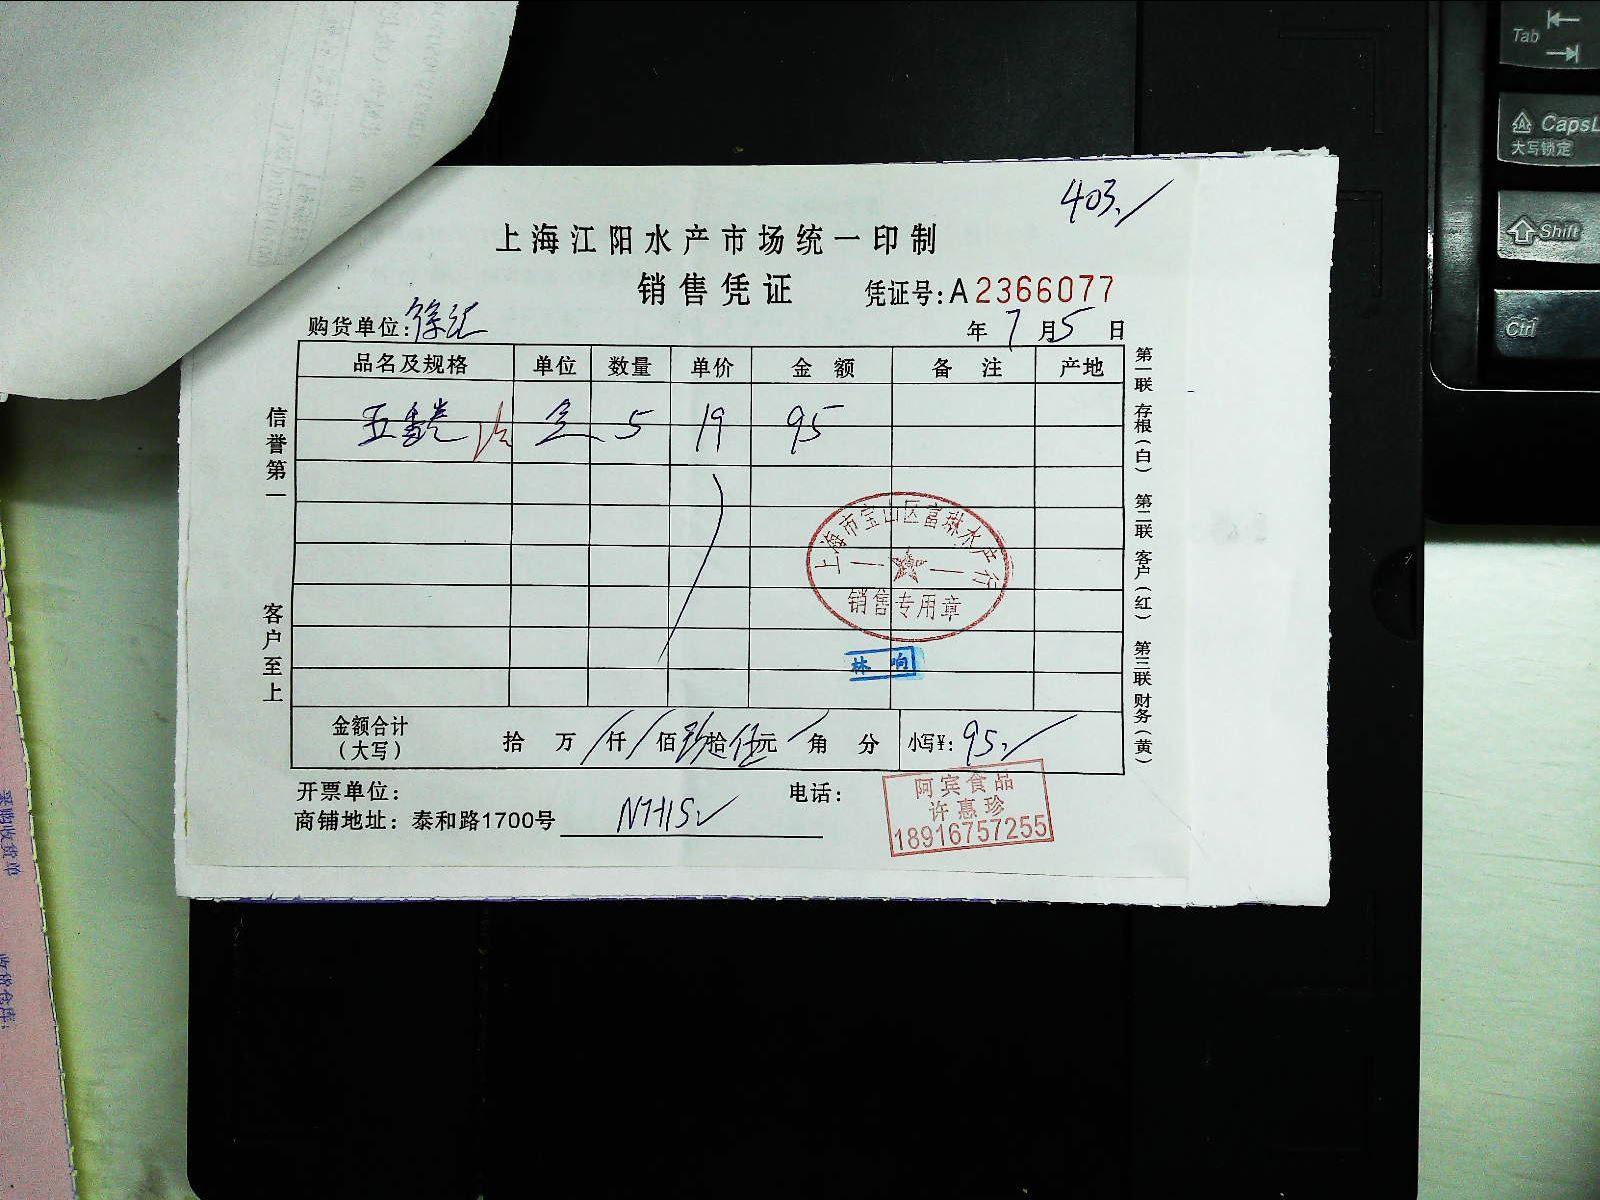 403.
上海江阳水产市场统一印制
销售凭证 凭证号:A2366077
购货单位:徐汇 年 7 月 5 日
品名及规格 单位 数量 单价 金额 备注 产地
五香 5 19 95
信誉第一
客户至上
第一联 存根(白) 第二联 客户(红) 第三联 财务(黄)
上海市宝山区富琳水产行
销售专用章
林响
金额合计(大写) 拾 万 仟 佰 玖拾伍元 角 分 小写¥: 95.
开票单位: 电话:
商铺地址: 泰和路1700号 N7H15
阿宾食品
许惠珍
18916757255
Tab
CapsL
大写锁定
Shift
Ctrl
采购收货单
收货仓库: